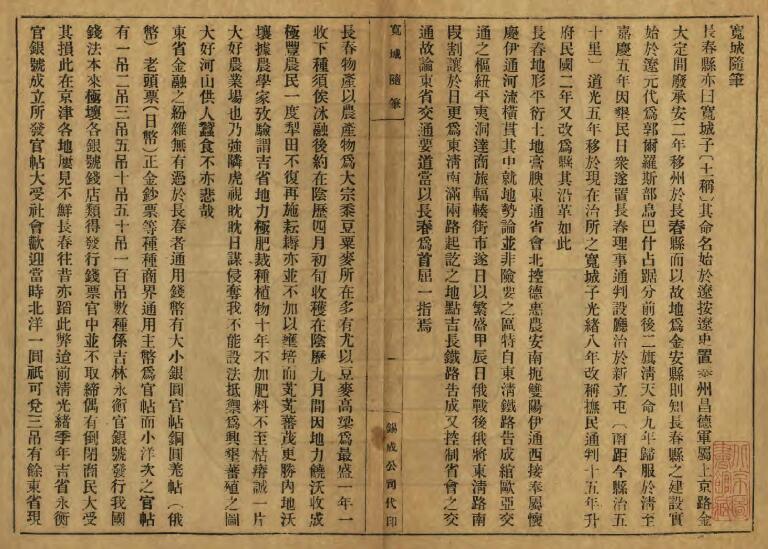 寬城隨筆
長春縣亦曰寬城子(土稱)其命名始於遼按遼史置泰州昌德軍屬上京路金
大定間廢承安二年移州於長春縣而以故地爲金安縣則知長春縣之建設實
始於遼元代爲郭爾羅斯部烏巴什占踞分前後二旗淸天命九年歸服於淸至
嘉慶五年因墾民日衆遂置長春理事通判設廳治於新立屯(南距今縣治五
十里)道光五年移於現在治所之寬城子光緖八年改稱撫民通判十五年升
府民國二年又改爲縣其沿革如此
長春地形平衍土地膏腴東通省會北控德惠農安南扼雙陽伊通西接奉屬懷
慶伊通河流橫貫其中就地勢論並非險要之區特自東淸鐵路告成綰歐亞交
通之樞紐平夷洞達商旅輻輳街市遂日以繁盛甲辰日俄戰後俄將東淸路南
段割讓於日更爲東淸南滿兩路起訖之地點吉長鐵路告成又控制省會之交
通故論東省交通要道當以長春爲首屈一指焉
寬城隨筆
一
錫成公司代印
長春物產以農產物爲大宗黍豆粟麥所在多有尤以豆麥高粱爲最盛一年一
收下種須俟冰融後約在陰歷四月初旬收穫在陰歷九月間因地力饒沃收成
極豐農民一度犁田不復再施耘耨亦並不加以壅培而芃芃蕃茂更勝內地沃
壤據農學家攷驗謂吉省地力極肥栽種植物十年不加肥料不至枯瘠誠一片
大好農業場也乃强隣虎視眈眈日謀侵奪我不能設法抵禦爲興墾蕃殖之圖
大好河山供人蠶食不亦悲哉
東省金融之紛雜無有過於長春者通用錢幣有大小銀圓官帖銅圓羌帖(俄
幣)老頭票(日幣)正金鈔票等種種商界通用主幣爲官帖而小洋次之官帖
有一吊二吊三吊五吊十吊五十吊一百吊數種係吉林永衡官銀號發行我國
錢法本來極壞各銀號錢店類得發行錢票官中並不取締偶有倒閉商民大受
其損此在京津各地屢見不鮮長春往昔亦蹈此弊迨前淸光緖季年吉省永衡
官銀號成立所發官帖大受社會歡迎當時北洋一圓祇可兌三吊有餘東省現